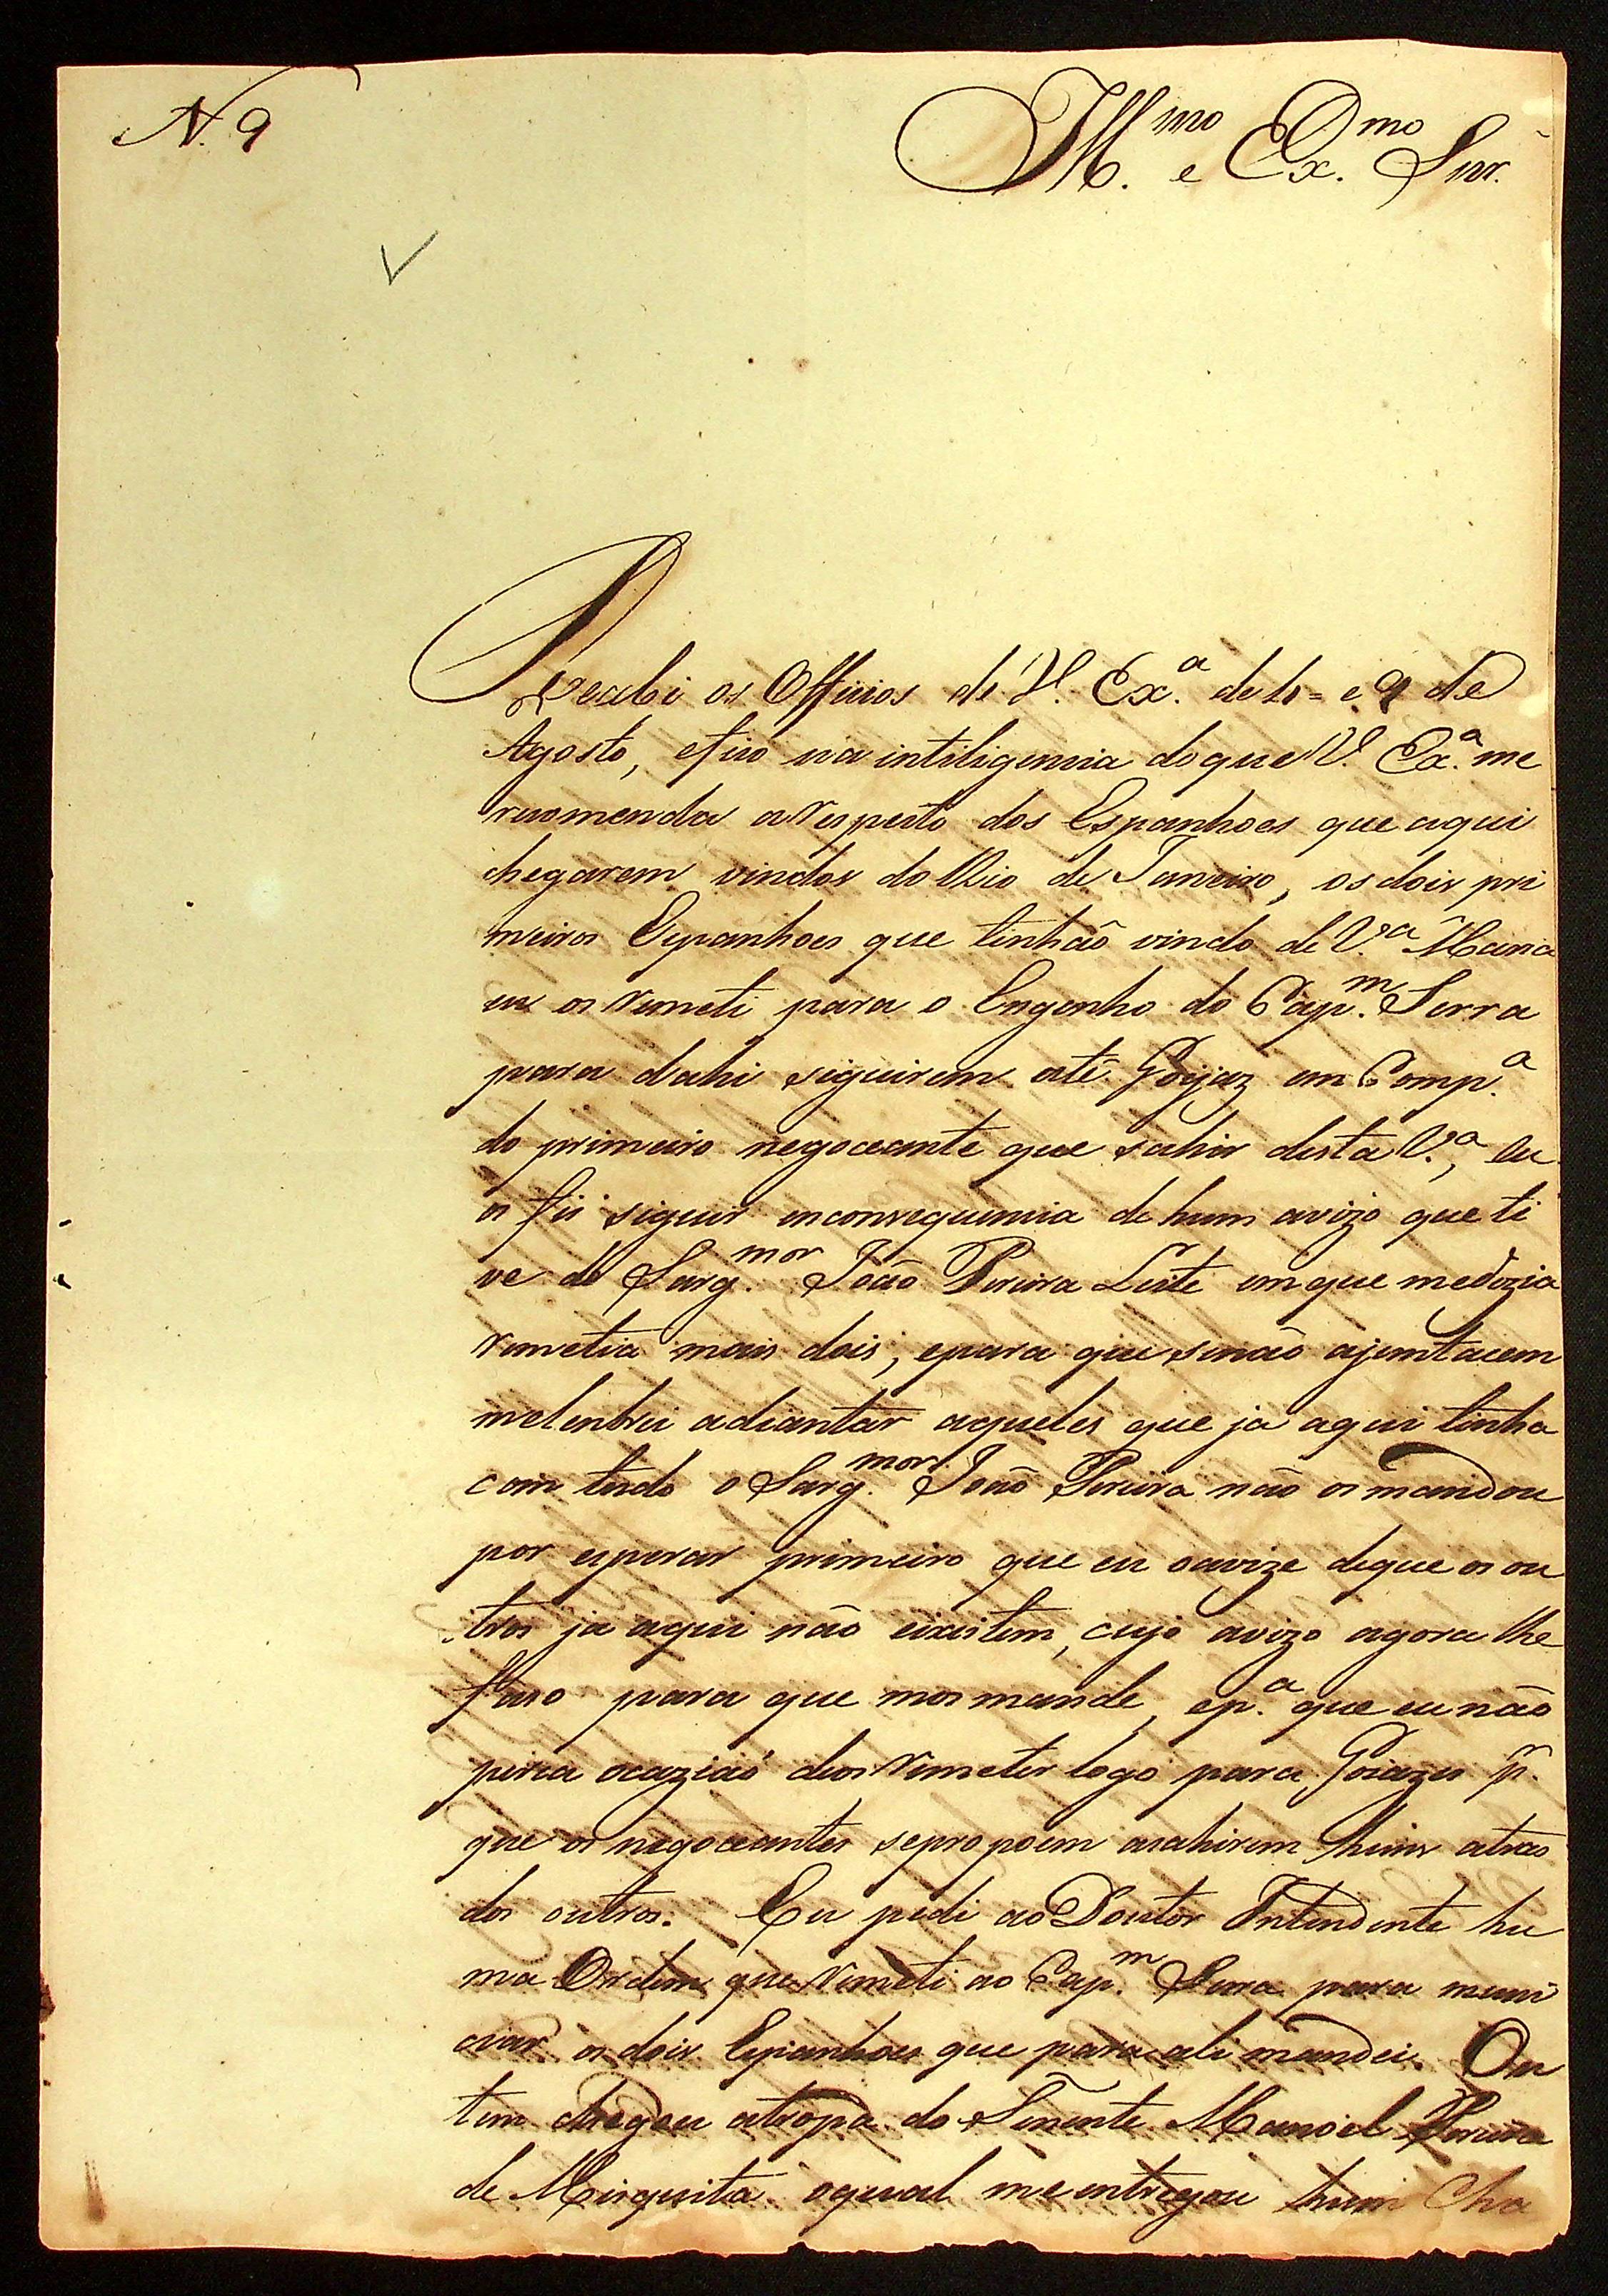 N. 9
Ill.mo e Ex.mo Snr.
Recebi os Officios de V. Ex.a de 4 = e 9 de
Agosto, efico na intiligencia doque V. Ex.a me
recomenda arespeito dos Espanhoes que aqui
chegarem vindos do Rio de Janeiro, os dois pri
meiros Espanhoes que tinhão vindo de V.a Maria
eu os remeti para o Engenho do Cap.m Serra
para dahi siguirem até Goyaz em Comp.a
do primeiro negoceante que sahir desta V.a, eu
os fis siguir enconsequencia de hum avizo que ti
ve do Sarg.mor João Pereira Leite emque medizia
remetia mais dois, epara que senão ajuntacem
melembrei adiantar aqueles que ja aqui tinha
com tudo o Sarg.mor João Pereira não os mandou
por esperar primeiro que eu oavize deque os ou
tros ja aqui não eixistem, cujo avizo agora lhe
faso para que mos mande, ep.a que eu não
perca ocazião deos remeter logo para Goiazes p.r
que os negoceantes sepropoem asahirem huns atras
dos outros. Eu pedi ao Doutor Intendente hu
ma Ordem que remeti ao Cap.m Serra para muni
ciar os dois Espanhoes que para ali mandei. On
tem chegou atropa do Tenente Manoel Pereira
de Misquita oqual me entregou hum Cha